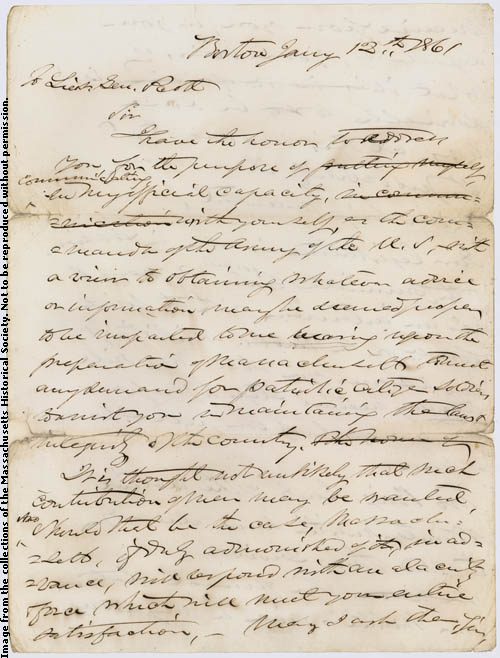 Image from the collections of the Massachusetts Historical Society. Not to be reproduced without permission.
Boston Jany 12th 1861
To Lieut Gen. Scott
Sir
I have the honor to address
you for the purpose of putting myself
communicating
in my official capacity, in commu-
-nication with yourself, as the com-
-mander of the Army of the U.S, with
a view to obtaining whatever advice
or information may be deemed proper
to be imparted to me bearing upon the
preparation of Massachusetts to meet
any demand for patriotic citizen soldiers
to assist you in maintaining the laws
integrity of the country.
It is thought not unlikely that such
contribution of men may be wanted,
and
should that be the case, Massachu-
-setts, if duly admonished of it, in ad-
-vance, will respond with an alacrity
force which will meet your entire
satisfaction, — May I ask the